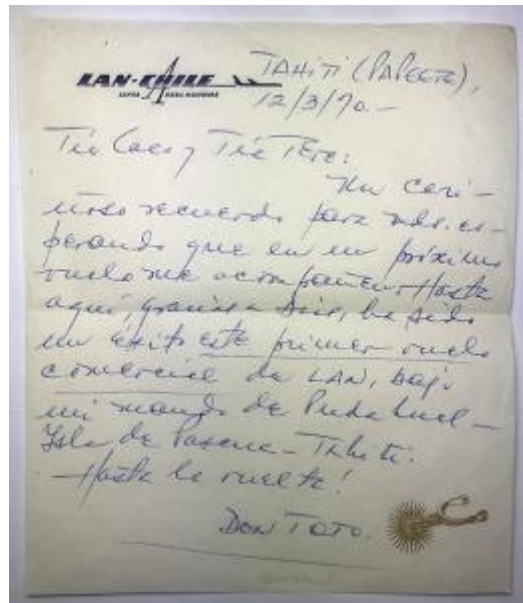 LAN-CHILE
TAHITI (PAPEETE),
12/3/70.-
Tío Caco y Tía Tere:
Un cari-
ñoso recuerdo para uds. es-
perando que en un próximo
vuelo me acompañen. Hasta
aquí, gracias a Dios, ha sido
un éxito este primer vuelo
comercial de LAN, bajo
mi mando de Pudahuel-
Isla de Pascua-Tahiti.
Hasta la vuelta!
DON TOTO.